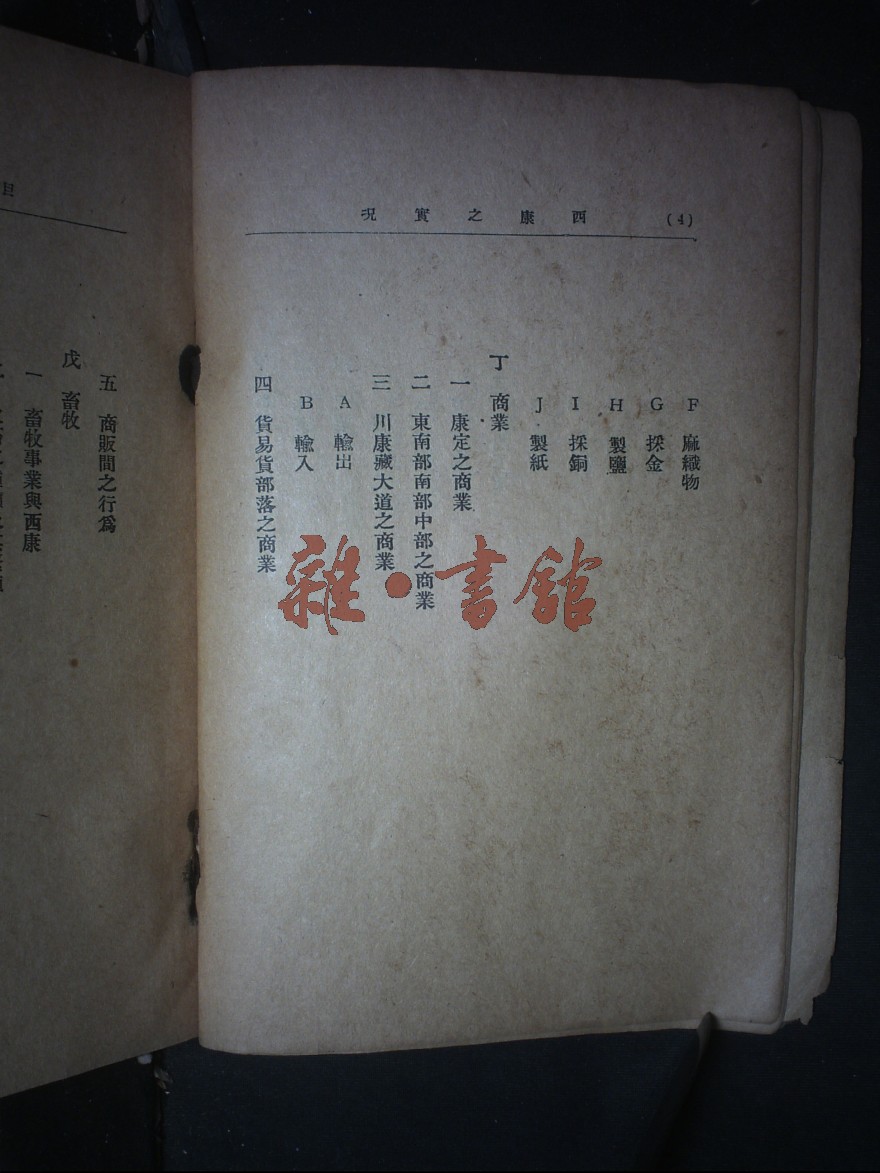 (4) 西康之實況
F 麻織物
G 採金
H 製鹽
I 採銅
J 製紙
丁 商業
一 康定之商業
二 東南部南部中部之商業
三 川康藏大道之商業
A 輸出
B 輸入
四 貨易貨部落之商業
雜·書館
目
五 商販間之行爲
戊 畜牧
一 畜牧事業與西康